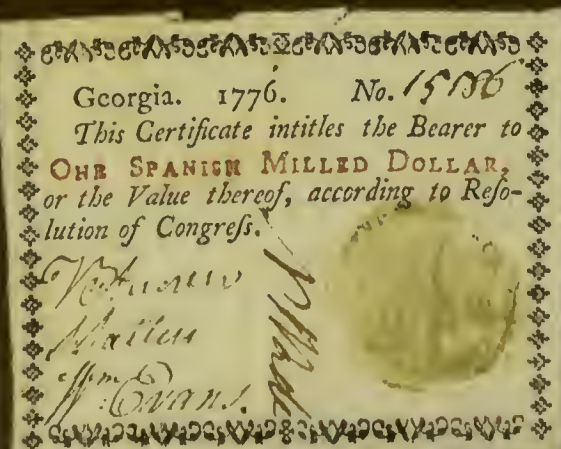 Georgia. 1776. No. 15186
This Certificate intitles the Bearer to
ONE SPANISH MILLED DOLLAR,
or the Value thereof, according to Reſo-
lution of Congreſs.
Wm Evans.